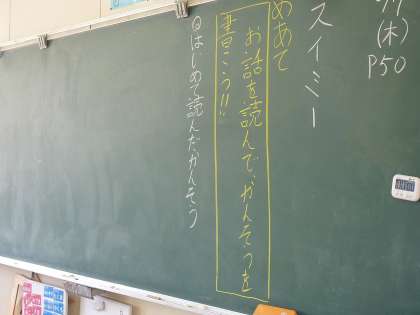 (木)
P50
スイミー
めあて
お話を読んで、かんそうを
書こう!!
はじめて読んだかんそう